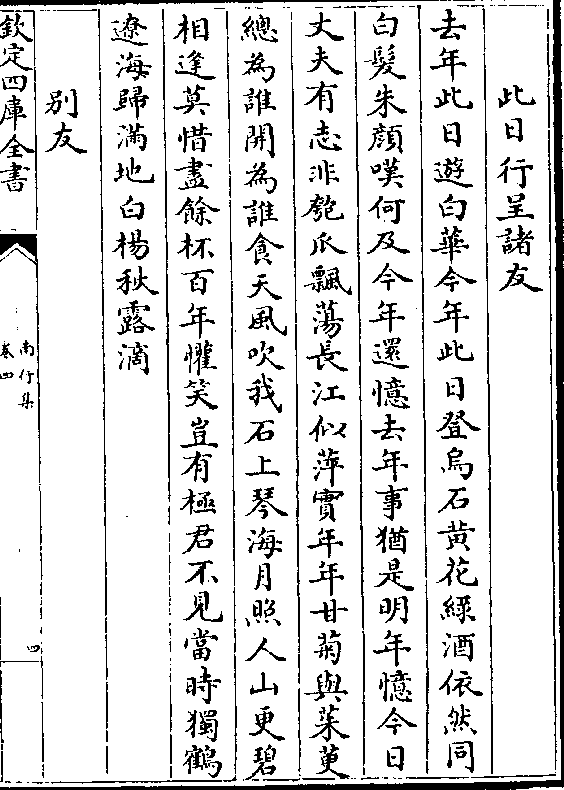 此日行呈諸友
去年此日遊白華今年此日登烏石黄花緑酒依然同
白髪朱顔嘆何及今年還憶去年事猶是明年憶今日
丈夫有志非匏瓜飄蕩長江似萍實年年甘菊與茱萸
總為誰開為誰食天風吹我石上琴海月照人山更碧
相逢莫惜盡餘杯百年懽笑豈有極君不見當時獨鶴
遼海歸滿地白楊秋露滴
别友
欽定四庫全書
南行集
卷四
四